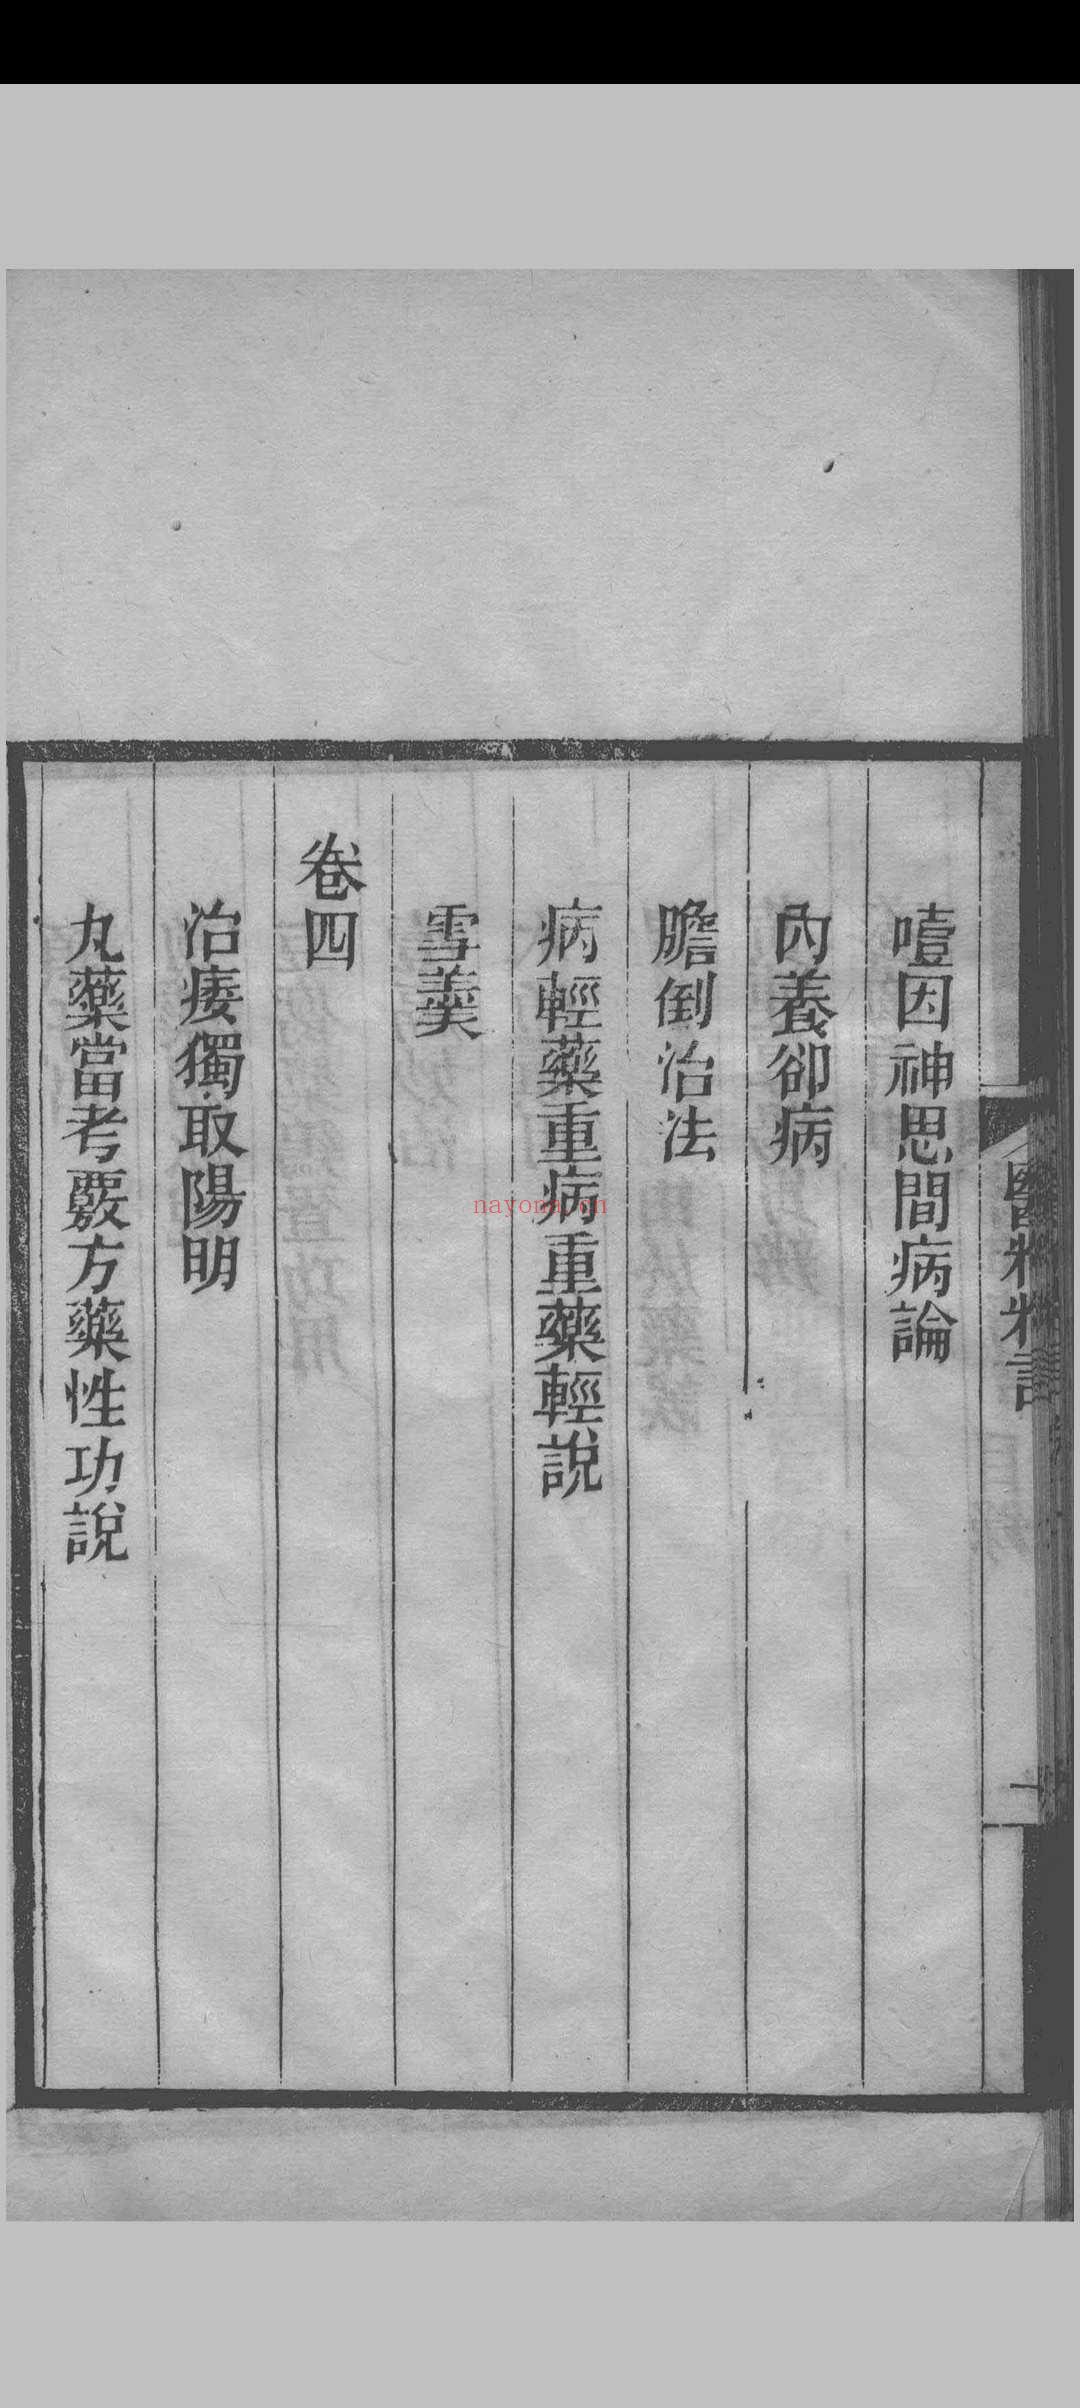 噎因神思間病論
內養卻病
膽倒治法
病輕藥重病重藥輕說
雪羹
卷四
治痿獨取陽明
丸藥當考覈方藥性功說
nayona.cn